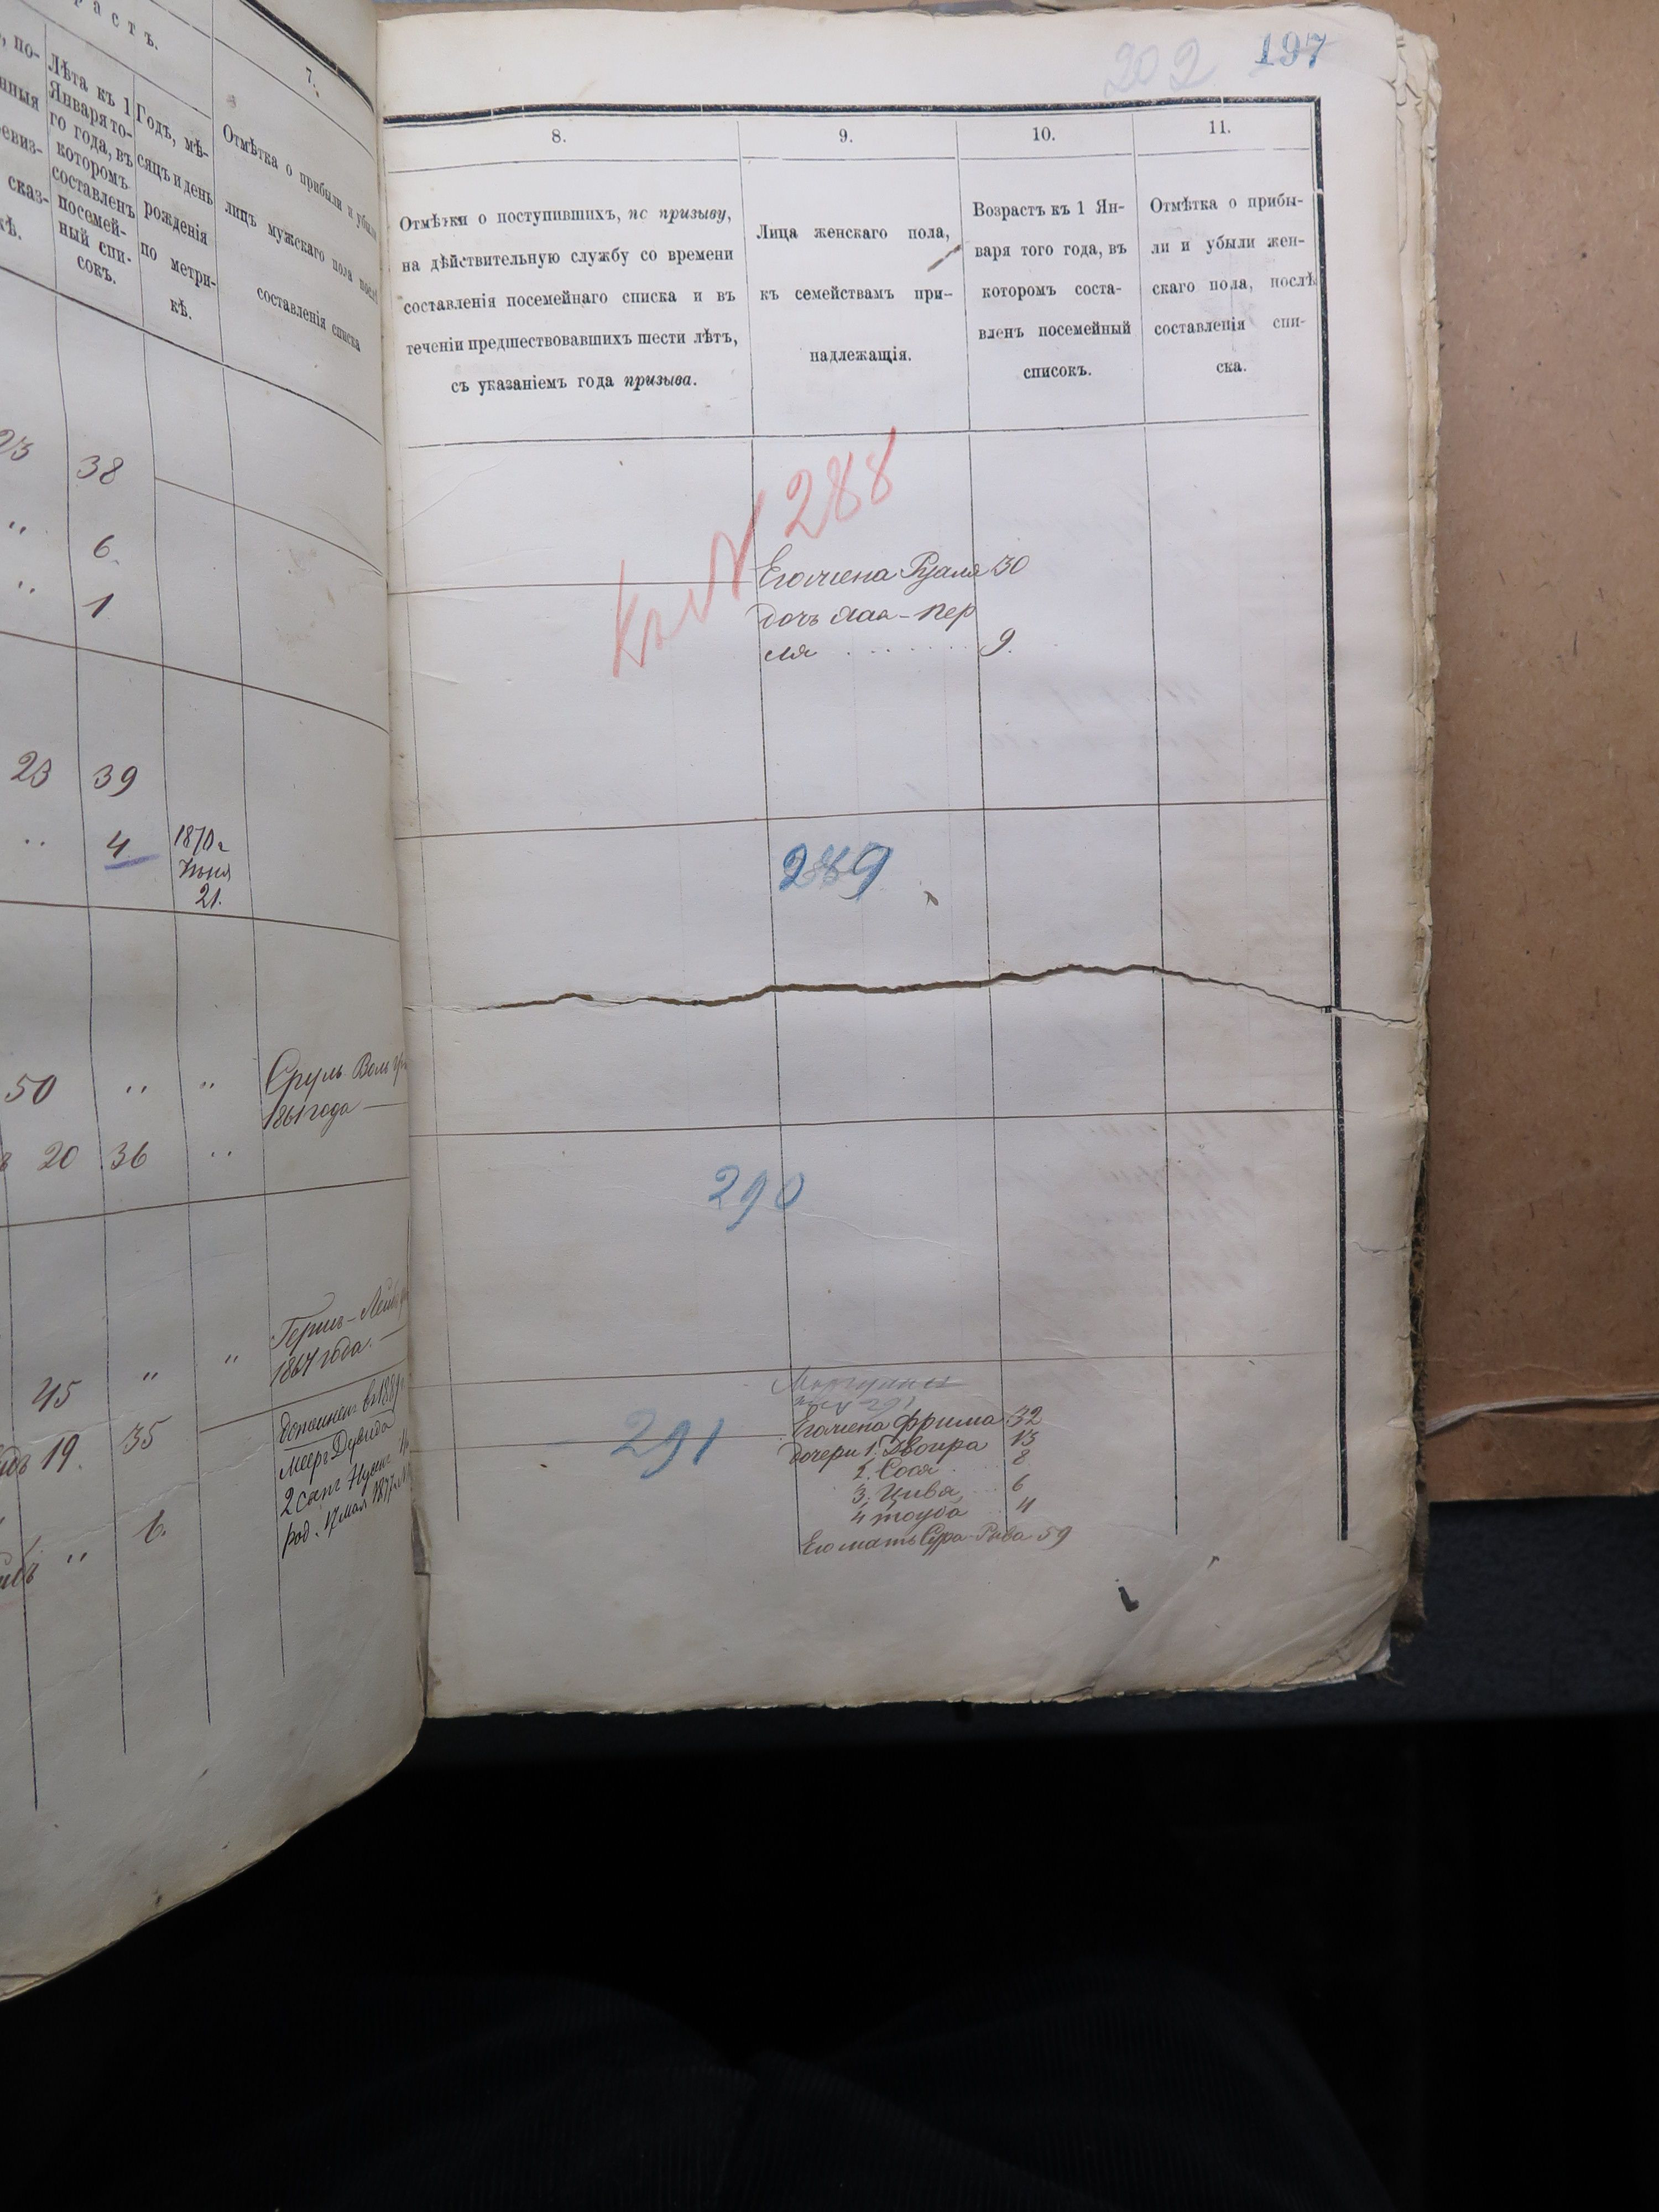 7.
Лѣта къ 1
Января то-
го года, въ
которомъ
составленъ
посемей-
ный спи-
сокъ.
Годъ, мѣ-
сяцъ и день
рожденія
по метри-
кѣ.
Отмѣтка о прибыли и убыли
лицъ мужскаго пола послѣ
составленія списка
23 38
" 6.
" 1
23 39
" 4. 1870 г
Июня
21.
50 " " Сруль Воль
1861 года —
20 36 "
45 " " Герш-Лейб
1867 года. —
19. 35
Мееръ Дувида
2 сынъ
род. 17 мая 1877
" 6.
202 197
8. 9. 10. 11.
Отмѣтки о поступившихъ, по призыву,
на дѣйствительную службу со времени
составленія посемейнаго списка и въ
теченіи предшествовавшихъ шести лѣтъ,
съ указаніемъ года призыва.
Лица женскаго пола,
къ семействамъ при-
надлежащія.
Возрастъ къ 1 Ян-
варя того года, въ
которомъ соста-
вленъ посемейный
списокъ.
Отмѣтка о прибы-
ли и убыли жен-
скаго пола, послѣ
составленія спи-
ска.
Къ № 288
Его жена Рухля 30
дочь Хая-Пер
ля . . . . . . . 9.
289
290
291
Его жена Фрима 32
дочери 1. Двойра 13
2. Сося 8
3. Цива 6
4 Тоуба 4
Его мать Сура-Рива 59